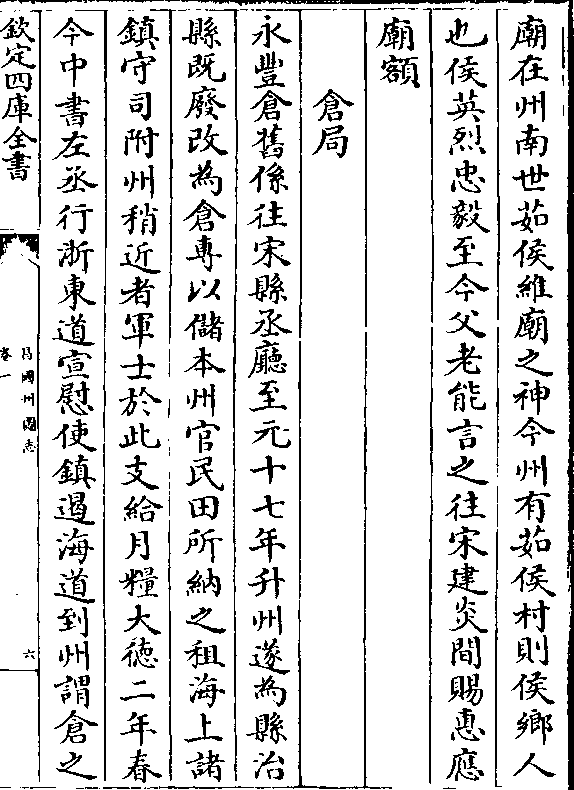 廟在州南世茹侯維廟之神今州有茹侯村則侯鄉人
也侯英烈忠毅至今父老能言之往宋建炎間賜惠應
廟額
倉局
永豐倉舊係往宋縣丞廳至元十七年升州遂為縣治
縣既廢改為倉專以儲本州官民田所納之租海上諸
鎮守司附州稍近者軍士於此支給月糧大徳二年春
今中書左丞行浙東道宣慰使鎮遏海道到州謂倉之
欽定四庫全書
昌國州圖志
卷一
六